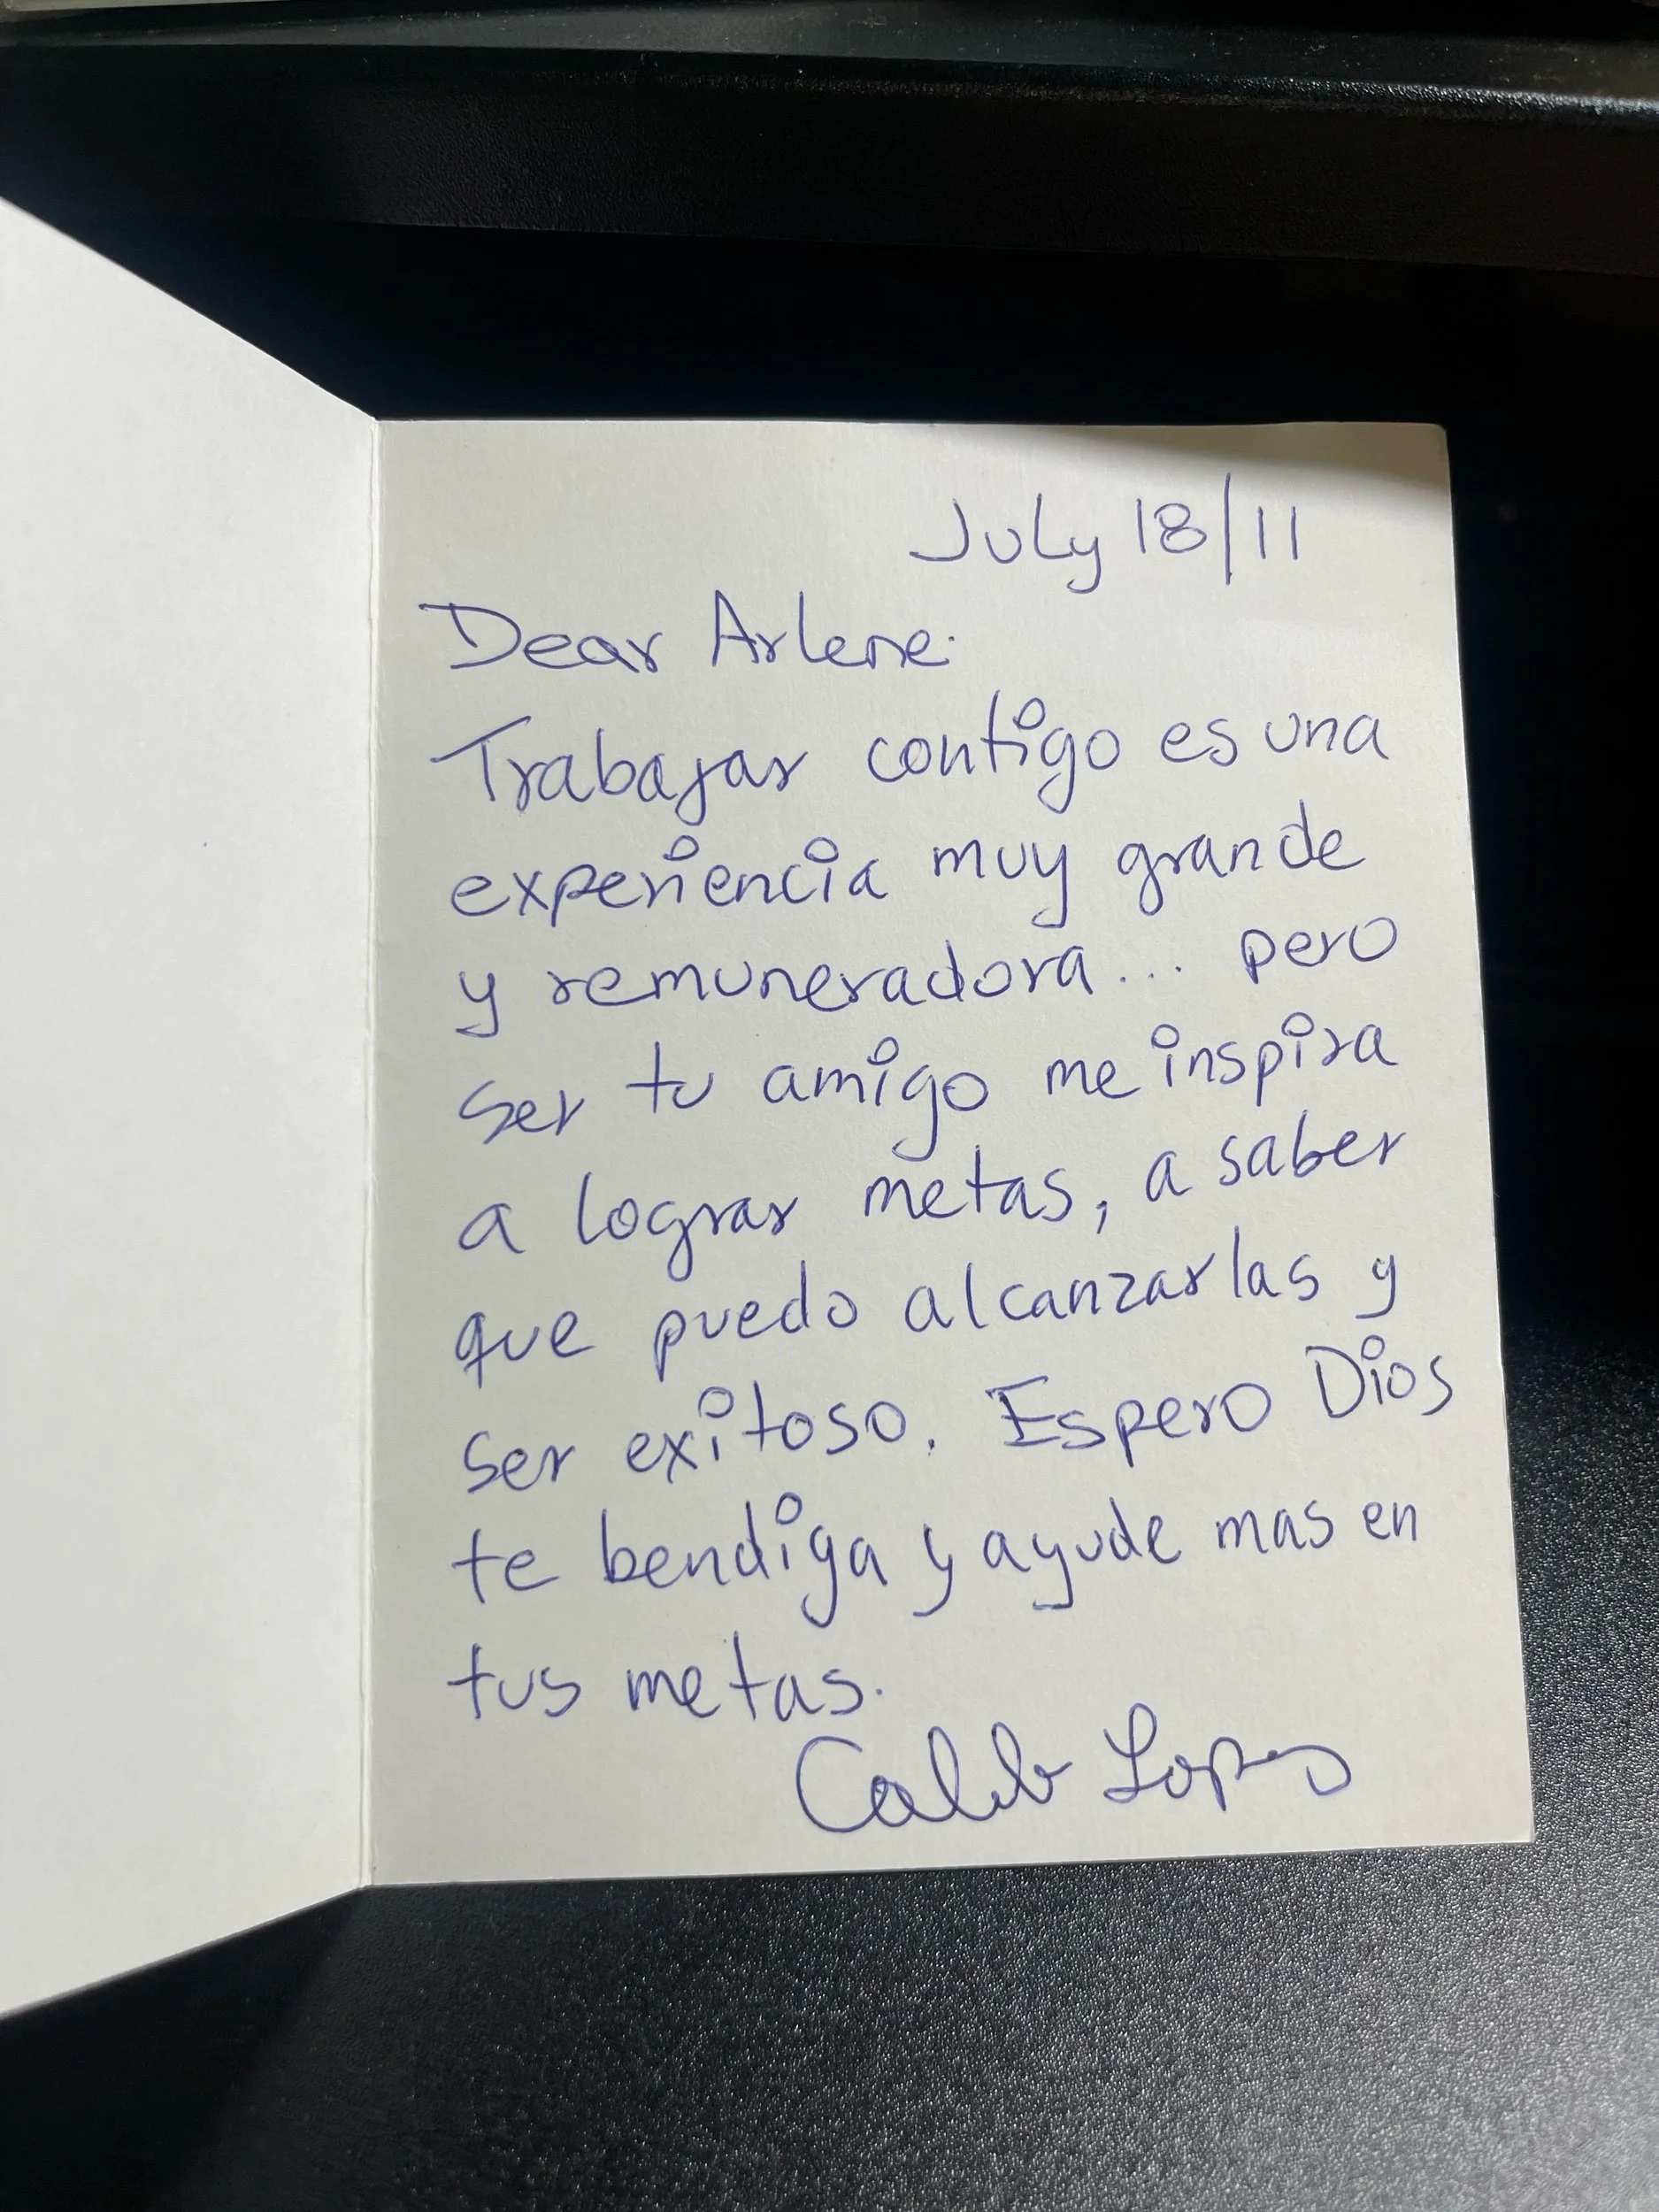 July 18/11
Dear Arlene:
Trabajar contigo es una
experiencia muy grande
y remuneradora... pero
ser tu amigo me inspira
a lograr metas, a saber
que puedo alcanzarlas y
ser exitoso. Espero Dios
te bendiga y ayude mas en
tus metas.
Caleb Lopez